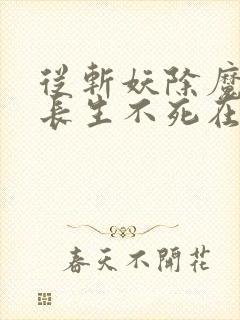 從斬妖除魔
長生不死在
春天不開花